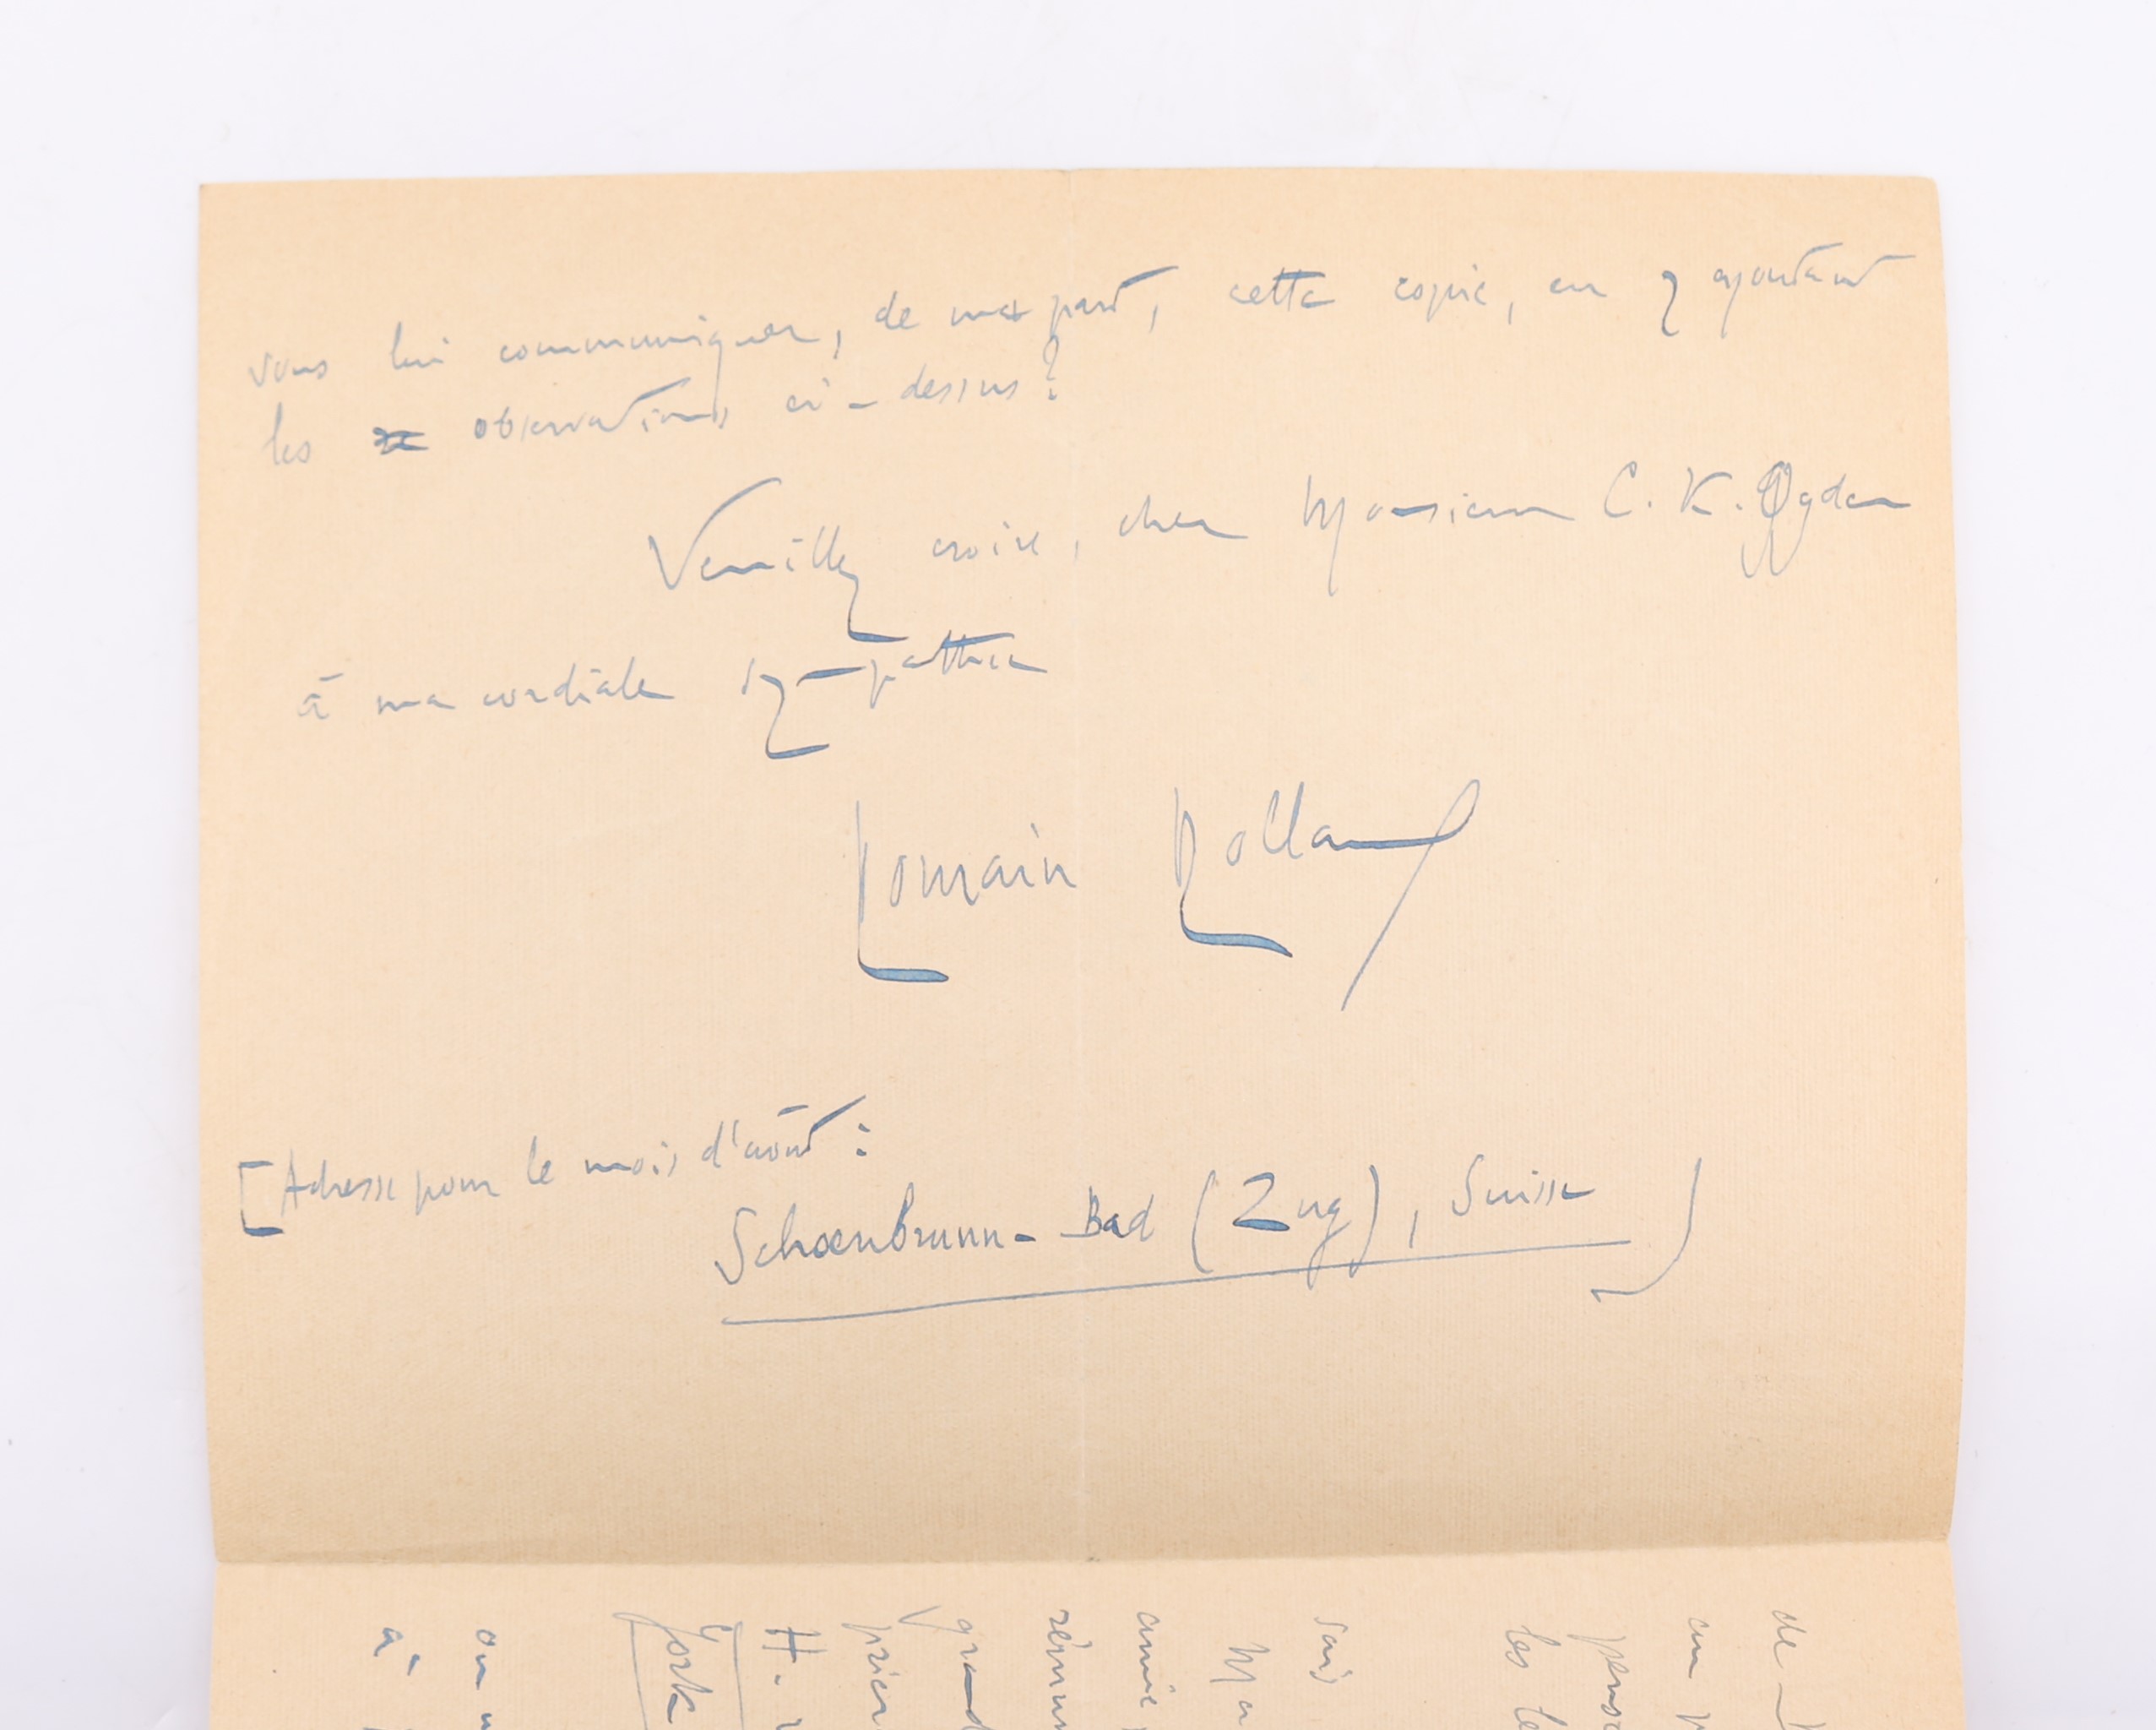 vous lui communiquer, de ma part, cette copie, en y ajoutant
les observations ci-dessus?
Veuillez croire, cher Monsieur C. K. Ogden
à ma cordiale sympathie
Romain Rolland
[Adresse pour le mois d'août :
Schoenbrunn-Bad (Zug), Suisse)
de
un
les
sais
amie
grand
prier
H.
York
on
à